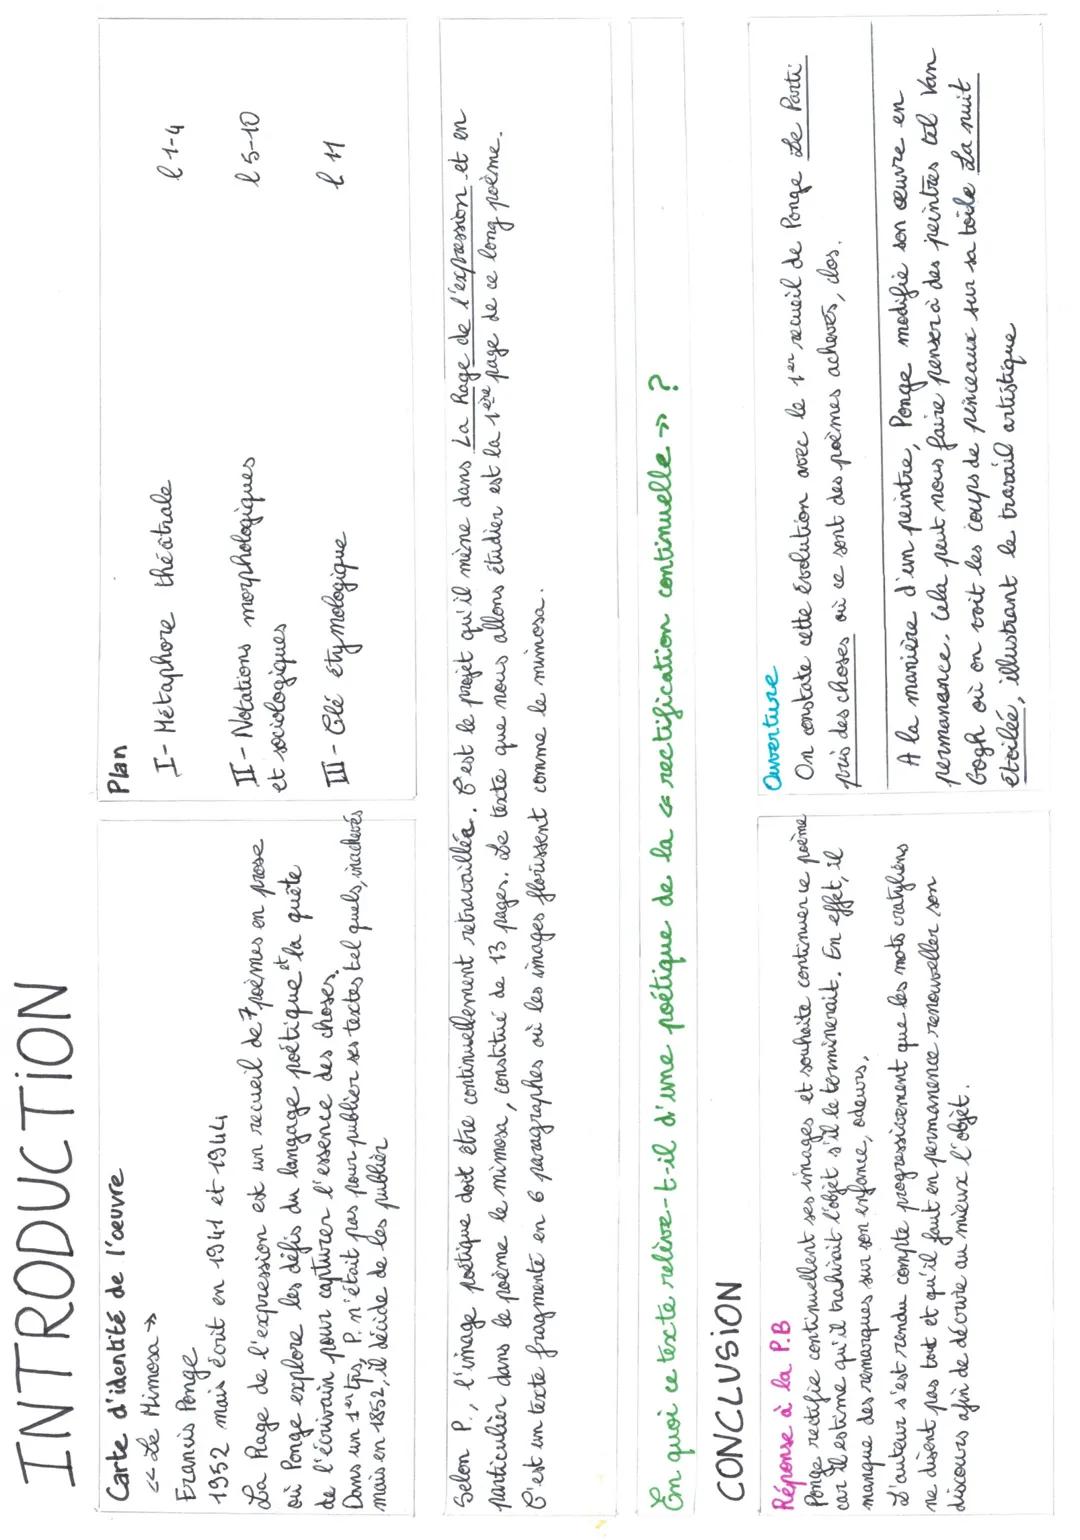 INTRODUCTION
Carte d'identité de l'œuvre
<< Le Mimosa >>
Francis Ponge
1952 mais écrit en 1941 et 1944
La Rage de l'expression est un recueil de 7 poèmes en prose
où Ponge explore les défis du langage poétique et la quête
de l'écrivain pour capturer l'essence des choses.
Dans un 1er tps, P. n'était pas pour publier ses textes tel quels, inachevés
mais en 1852, il décide de les publier
Plan
I - Métaphore théâtrale l 1-4
II - Notations morphologiques l 5-10
et sociologiques
III - Clé étymologique l 11
Selon P., l'image poétique doit être continuellement retravaillée. C'est le projet qu'il mène dans La Rage de l'expression et en
particulier dans le poème le mimosa, constitué de 13 pages. Le texte que nous allons étudier est la 1ère page de ce long poème.
C'est un texte fragmenté en 6 paragraphes où les images fleurissent comme le mimosa.
En quoi ce texte relève-t-il d'une poétique de la << rectification continuelle >> ?
CONCLUSION
Réponse à la P.B
Ponge rectifie continuellement ses images et souhaite continuer ce poème
car il estime qu'il trahirait l'objet s'il le terminerait. En effet, il
manque des remarques sur son enfance, odeurs,
L'auteur s'est rendu compte progressivement que les mots cratyliens
ne disent pas tout et qu'il faut en permanence renouveller son
discours afin de décrire au mieux l'objet.
Ouverture
On constate cette évolution avec le 1er recueil de Ponge Le Parti
pris des choses où ce sont des poèmes achevés, clos.
A la manière d'un peintre, Ponge modifie son œuvre en
permanence. Cela peut nous faire penser à des peintres tel Van
Gogh où on voit les coups de pinceaux sur sa toile La nuit
étoilée, illustrant le travail artistique